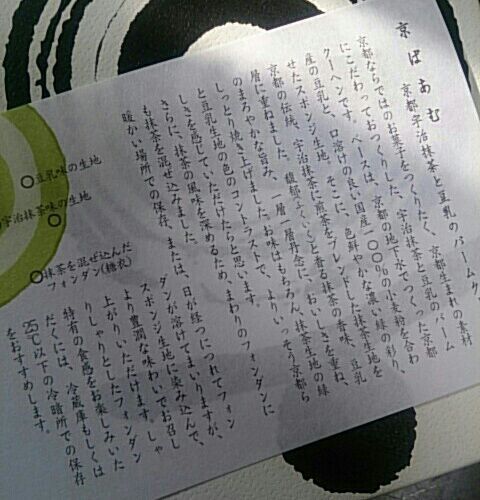 京ばあむ
京都宇治抹茶と豆乳のバームク
京都ならではのお菓子をつくりたく、京都生まれの素材
にこだわっておつくりした、宇治抹茶と豆乳のバーム
クーヘンです。ベースは、京都の地下水でつくった京都
産の豆乳と、口溶けの良い国産一〇〇%の小麦粉を合わ
せたスポンジ生地。そこに、色鮮やかな濃い緑の彩り、
京都の伝統、宇治抹茶に煎茶をブレンドした抹茶生地を
層に重ねました。馥郁と香る抹茶の香味、豆乳
のまろやかな旨み、一層一層丹念に、おいしさを重ね、
しっとり焼き上げました。お味はもちろん、抹茶生地の緑
と豆乳生地の色のコントラストで、よりいっそう京都ら
しさを感じていただけたらと思います。
さらに、抹茶の風味を深めるため、まわりのフォンダンに
も抹茶を混ぜ込みました。
暖かい場所での保存、または、日が経つにつれてフォン
ダンが溶けてまいりますが、
スポンジ生地に染み込んで、
より豊潤な味わいでお召し
上がりいただけます。しゃ
りしゃりとしたフォンダン
特有の食感をお楽しみいた
だくには、冷蔵庫もしくは
25℃以下の冷暗所での保存
をおすすめします。
豆乳味の生地
宇治抹茶味の生地
抹茶を混ぜ込んだ
フォンダン(糖衣)